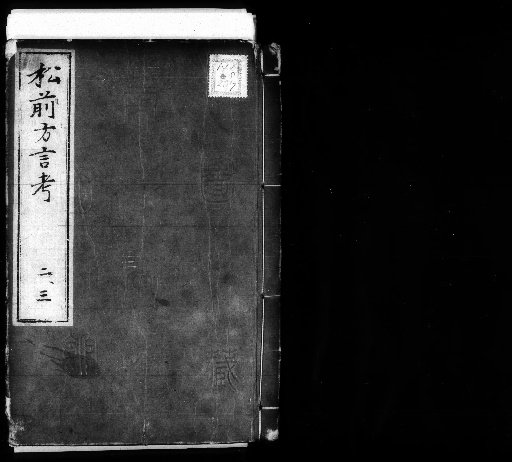 松前方言考
二、三